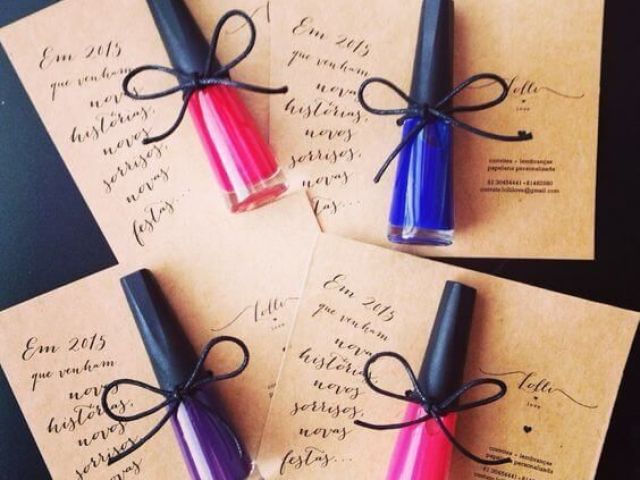 Em 2015
que venham
novas
histórias,
novos
sorrisos,
novas
festas...
Em 2015
que venham
novas
histórias,
novos
sorrisos,
novas
festas...
Lolli
love
convites + lembranças
papelaria personalizada
Em 2015
que venham
novas
histórias,
novos
sorrisos,
novas
Lolli
love
Em 2015
que venham
novas
histórias,
novos
sorrisos,
novas
festas...
Lolli
love
convites + lembranças
papelaria personalizada